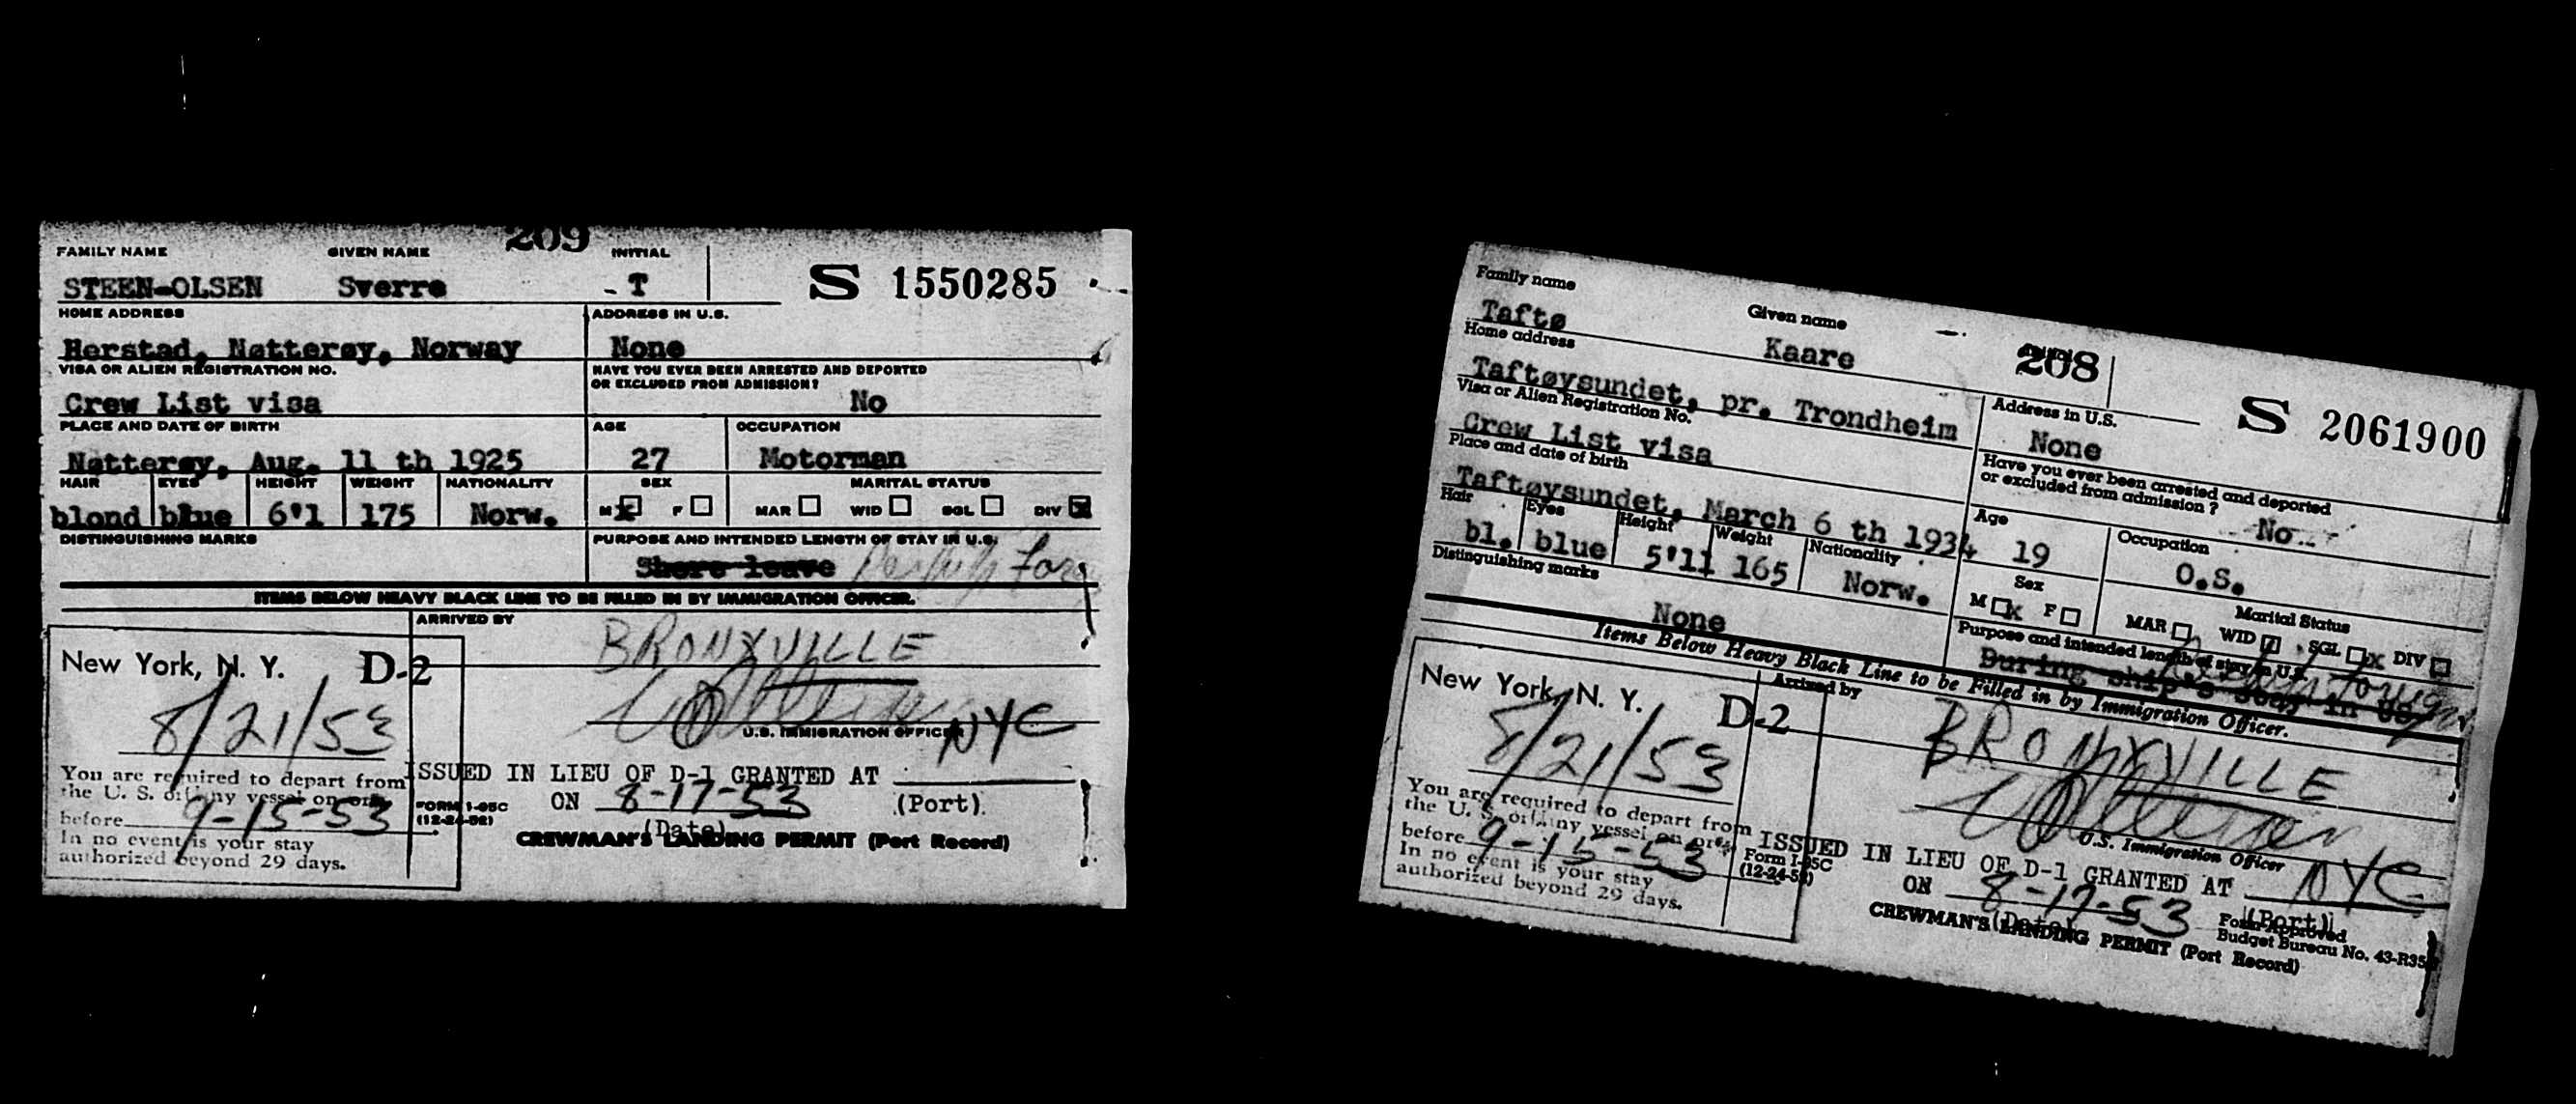 209
FAMILY NAME GIVEN NAME INITIAL
STEEN-OLSEN Sverre - T S 1550285
HOME ADDRESS ADDRESS IN U.S.
Herstad, Nøtterøy, Norway None
VISA OR ALIEN REGISTRATION NO. HAVE YOU EVER BEEN ARRESTED AND DEPORTED
OR EXCLUDED FROM ADMISSION?
Crew List visa No
PLACE AND DATE OF BIRTH AGE OCCUPATION
Nøtterøy, Aug. 11 th 1925 27 Motorman
HAIR EYES HEIGHT WEIGHT NATIONALITY SEX MARITAL STATUS
blond blue 6'1 175 Norw. M x F MAR WID SGL DIV x
DISTINGUISHING MARKS PURPOSE AND INTENDED LENGTH OF STAY IN U.S.
Shore leave
ITEMS BELOW HEAVY BLACK LINE TO BE FILLED IN BY IMMIGRATION OFFICER.
ARRIVED BY
BRONXVILLE
New York, N. Y. D-2
8/21/53
U.S. IMMIGRATION OFFICER NYC
You are required to depart from ISSUED IN LIEU OF D-1 GRANTED AT
the U. S. on any vessel on or
before 9-15-53 FORM I-95C ON 8-17-53 (Port)
(12-24-52) (Date)
In no event is your stay CREWMAN'S LANDING PERMIT (Port Record)
authorized beyond 29 days.
Family name Given name 208
Taftø Kaare S 2061900
Home address Address in U.S.
Taftøysundet, pr. Trondheim None
Visa or Alien Registration No. Have you ever been arrested and deported
or excluded from admission ?
Crew List visa No
Place and date of birth Age Occupation
Taftøysundet, March 6 th 1934 19 O.S.
Hair Eyes Height Weight Nationality Sex Marital Status
bl. blue 5'11 165 Norw. M x F MAR WID SGL x DIV
Distinguishing marks Purpose and intended length of stay in U.S.
None During ship's stay in US
Items Below Heavy Black Line to be Filled in by Immigration Officer.
Arrived by
BRONXVILLE
New York, N. Y. D-2
8/21/53
U.S. Immigration Officer
You are required to depart from ISSUED IN LIEU OF D-1 GRANTED AT NYC
the U. S. on any vessel on or
before 9-15-53 Form I-95C ON 8-17-53 (Port)
(12-24-52) (Date)
In no event is your stay CREWMAN'S LANDING PERMIT (Port Record)
authorized beyond 29 days.
Form Approved
Budget Bureau No. 43-R35